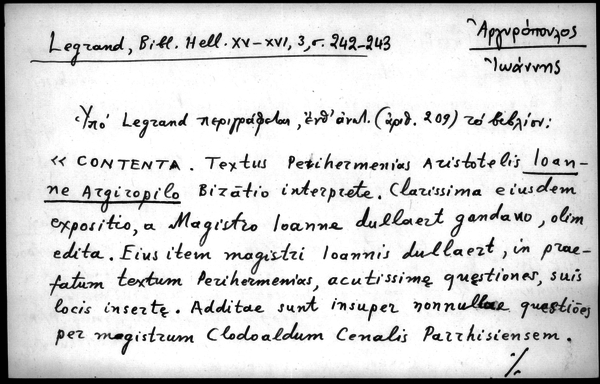 Legrand, Bibl. Hell. XV-XVI, 3, σ. 242-243
Ἀργυρόπουλος
Ἰωάννης
Ὑπό Legrand περιγράφεται, ἐνθ' ἀνωτ. (ἀριθ. 209) τό βιβλίον:
« CONTENTA. Textus Perihermenias Aristotelis Ioan-
ne Argiropilo Bizātio interprete. Clarissima eiusdem
expositio, a Magistro Ioanne dullaert gandavo, olim
edita. Eius item magistri Ioannis dullaert, in prae-
fatum textum Perihermenias, acutissimę quęstiones, suis
locis insertę. Additae sunt insuper nonnullae quęstiōes
per magistrum Clodoaldum Cenalis Parrhisiensem.
%